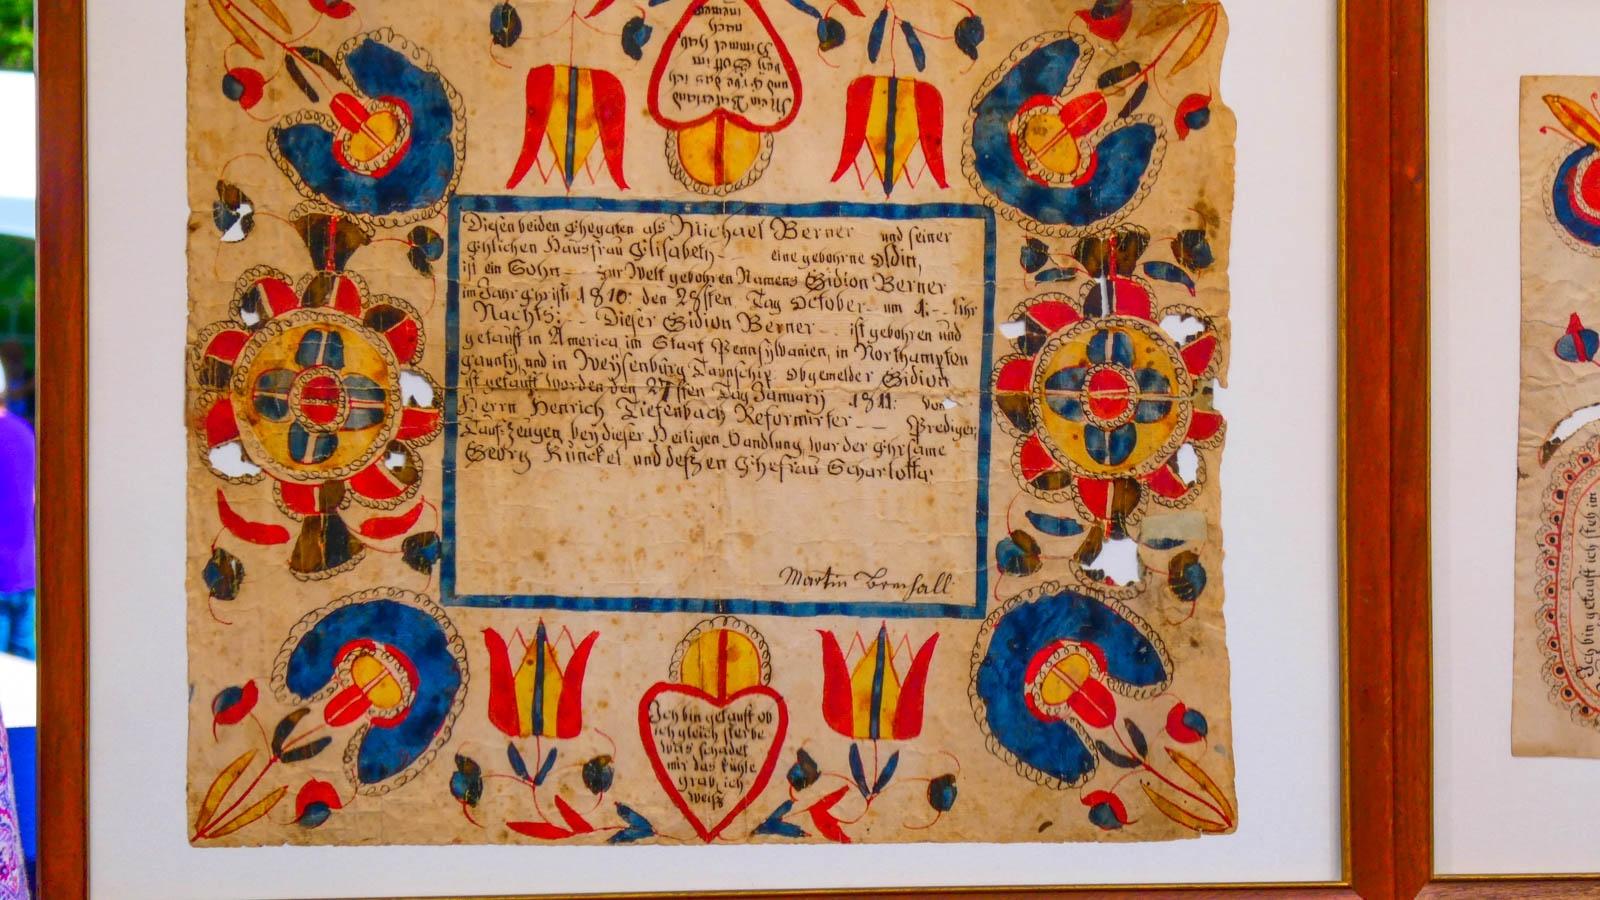 Mein Vaterland
und Erbe das ich
bey Gott im
Himmel hab,
nach
Diesen beiden Ehegaten als Michael Berner und seiner
Ehlichen Hausfrau Elisabeth eine gebohrne
ist ein Sohn zur Welt gebohren Namens Gidion Berner
im Jahr Christi 1810: den 28sten Tag October um 4: Uhr
Nachts: Dieser Gidion Berner ist gebohren und
getauft in America im Staat Pennsylvanien, in Northampton
Caunty, und in Weysenburg Taunschip Obgemelder Gidion
ist getauft worden den 27sten Tag Januarij 1811: von
Herrn Henrich Tiefenbach Reformirter Prediger,
Tauf-Zeugen bey dieser Heiligen Handlung war der Ehrsame
Georg Künckel und deßen Ehefrau Scharlotta
Martin
Ich bin getauft ob
ich gleich sterbe
was schadet
mir das kühle
grab, ich
weiß
Ich bin getauft ich steh im